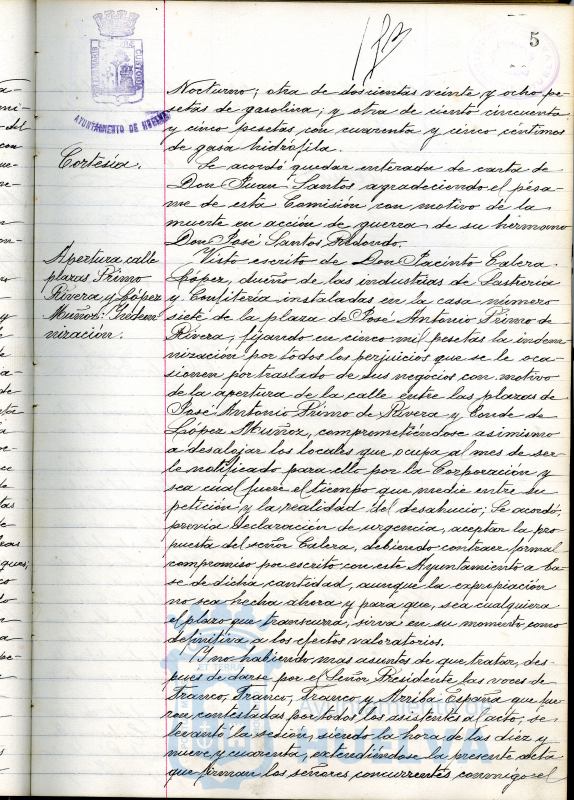 5
AYUNTAMIENTO DE HUELVA
Nocturno; otra de doscientas veinte y ocho pe-
setas de gasolina; y otra de ciento cincuenta
y cinco pesetas con cuarenta y cinco céntimos
de gasa hidrófila.
Cortesía.
Se acordó quedar enterada de carta de
Don Juan Santos agradeciendo el pésa-
me de esta Comisión con motivo de la
muerte en acción de guerra de su hermano
Don José Santos Redondo.
Apertura calle
plazas Primo
Rivera y López
Muñoz: Indem-
nización.
Visto escrito de Don Jacinto Calera
López, dueño de las industrias de Sastrería
y Confitería instaladas en la casa número
siete de la plaza de José Antonio Primo de
Rivera, fijando en cinco mil pesetas la indem-
nización por todos los perjuicios que se le oca-
sionen por traslado de sus negocios con motivo
de la apertura de la calle entre las plazas de
José Antonio Primo de Rivera y Conde de
López Muñoz, comprometiéndose asimismo
a desalojar los locales que ocupa al mes de ser-
le notificado para ello por la Corporación y
sea cual fuere el tiempo que medie entre su
petición y la realidad del desahucio; Se acordó,
previa declaración de urgencia, aceptar la pro-
puesta del señor Calera, debiendo contraer formal
compromiso por escrito con este Ayuntamiento a ba-
se de dicha cantidad, aunque la expropiación
no sea hecha ahora y para que, sea cualquiera
el plazo que transcurra, sirva en su momento como
definitiva a los efectos valoratorios.
Y no habiendo mas asuntos de que tratar, des-
pues de darse por el Señor Presidente las voces de
Franco, Franco, Franco y Arriba España que fue-
ron contestadas por todos los asistentes al acto, se
levantó la sesión, siendo la hora de las diez y
nueve y cuarenta, extendiéndose la presente acta
que firman los señores concurrentes conmigo el
Ayuntamiento de
HUELVA